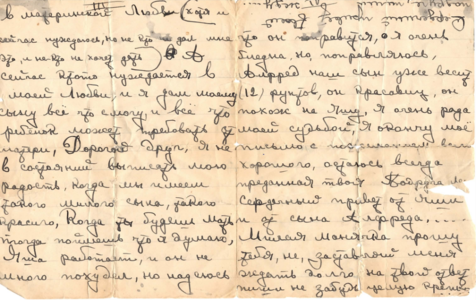 в материнской Любви (хотя и
сейчас нуждаюсь, но не кто дал мне
что, и не кто не хочет дать) А
сейчас кто-то нуждается в
моей Любви и я дам моему
сыну всё что смогу и всё что
ребёнок может требовать от
матери, Дорогой друг, я не
в состоянии выписать мою
радость, когда мы имеем
такого милого сына, такого
красив, Когда ты будешь мать
тогда поймёшь что я думаю,
Яша работает, и он не
много похудил, но надеюсь
что он поправится, я очень
бледна, но поправляюсь,
Алфред наш сын уже весит
(12) фунтов, он красавец, он
похож на Яши, я очень рада
моей судьбой, Я окончу мое
письмо с пожеланием всего
хорошего, остаюсь всегда
преданная твоя
Сердечный привет от Яши
и от сына Алфреда,....
Милая Манечка прошу
тебя, не заставляй меня
ждать долго на твой ответ
пиши не забудь целую крепко